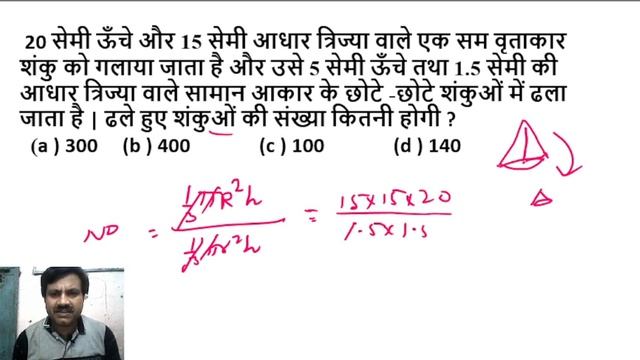 20 सेमी ऊँचे और 15 सेमी आधार त्रिज्या वाले एक सम वृताकार
शंकु को गलाया जाता है और उसे 5 सेमी ऊँचे तथा 1.5 सेमी की
आधार त्रिज्या वाले सामान आकार के छोटे -छोटे शंकुओं में ढला
जाता है | ढले हुए शंकुओं की संख्या कितनी होगी ?
(a ) 300 (b ) 400 (c ) 100 (d ) 140
NO = 1/3 πR²h / 1/3 πr²h = 15x15x20 / 1.5x1.5